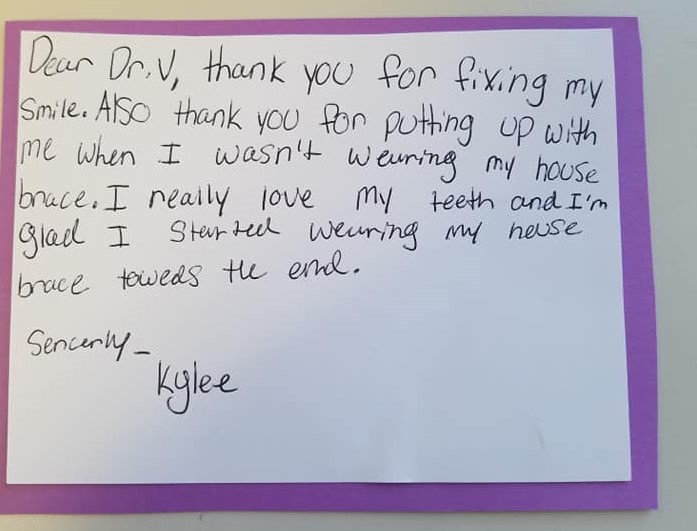 Dear Dr. V, thank you for fixing my
Smile. Also thank you for putting up with
me when I wasn't wearing my house
brace. I really love my teeth and I'm
glad I started wearing my house
brace toweds the end.
Sencerly -
Kylee